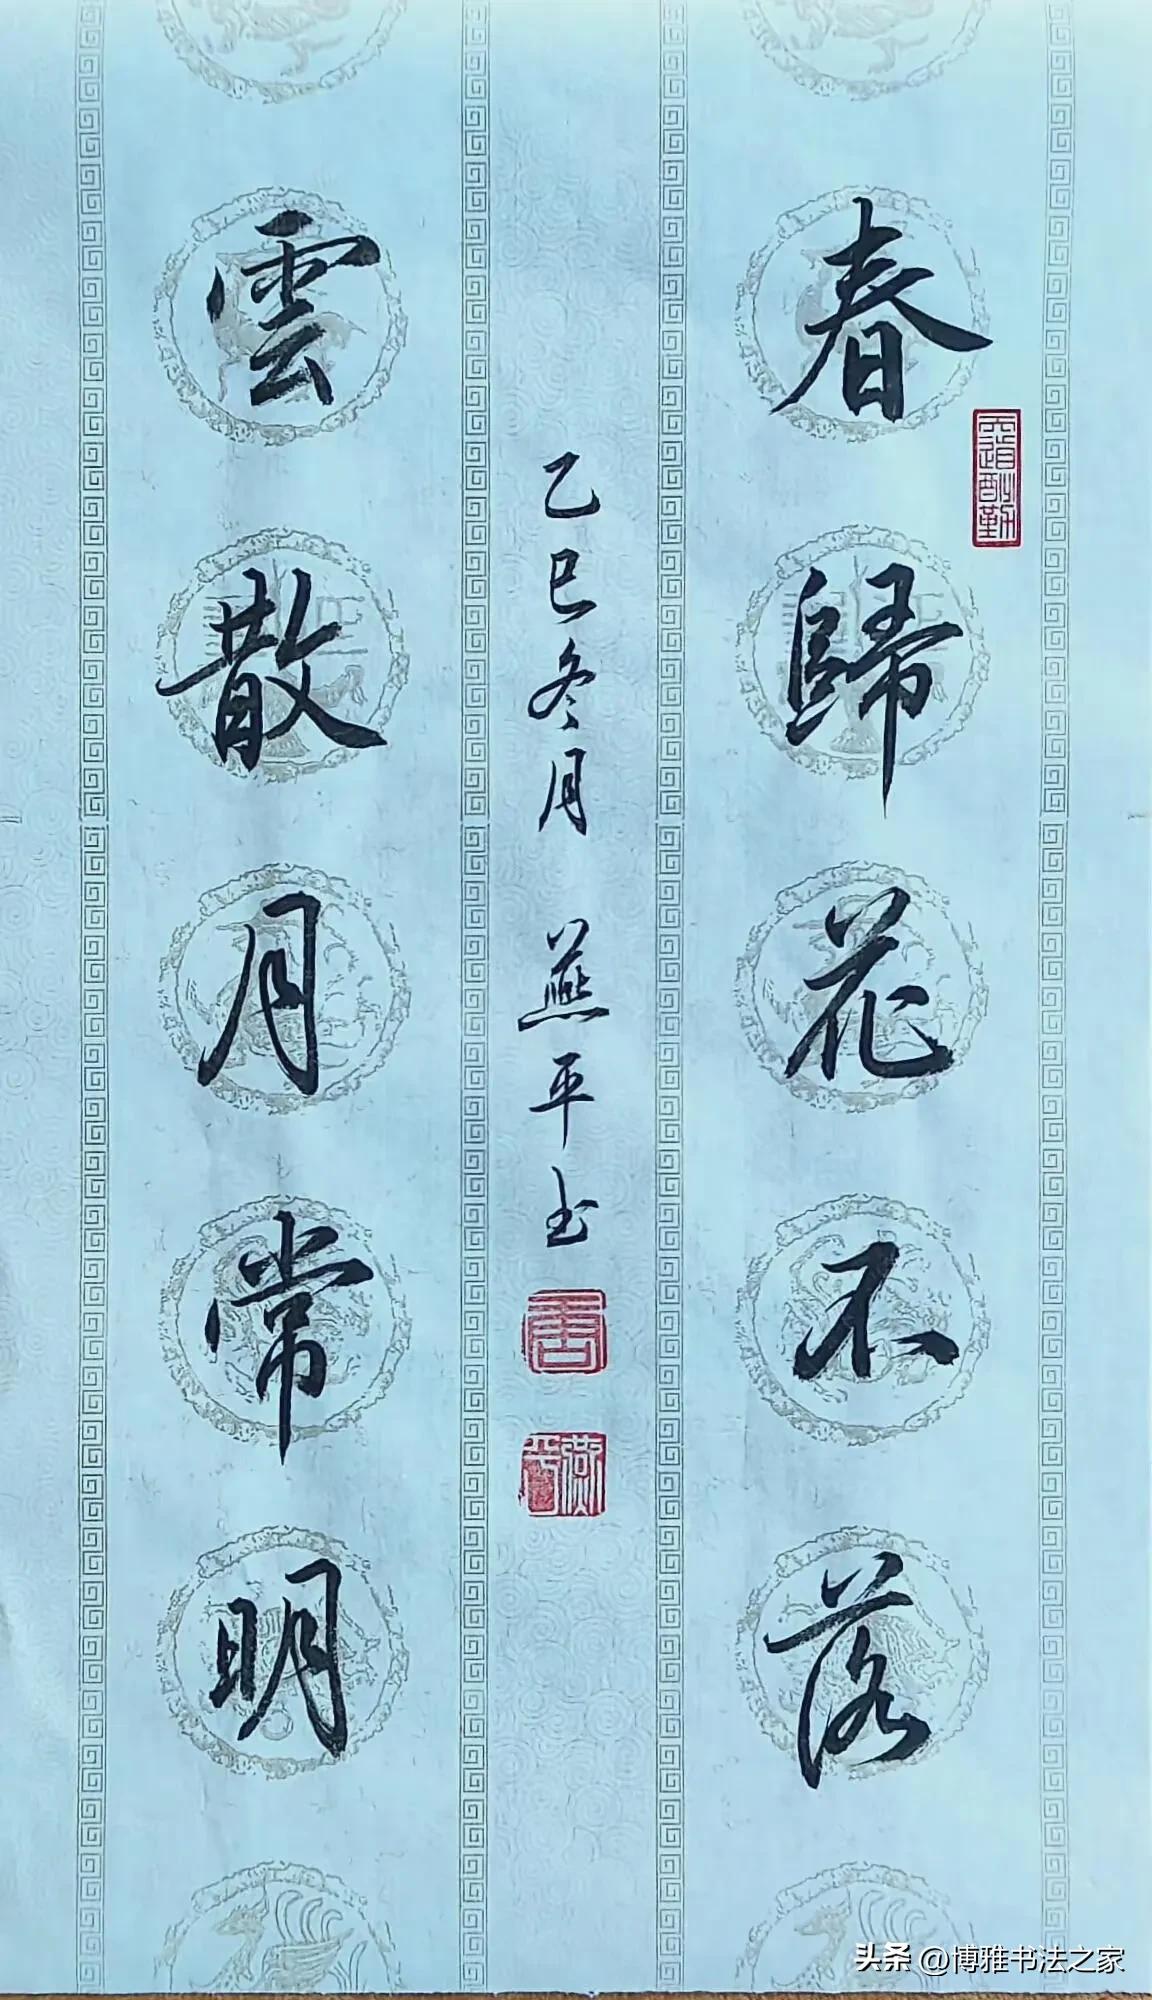 春歸花不落
天道酬勤
乙巳冬月 燕平书
燕平
雲散月常明
头条 @博雅书法之家